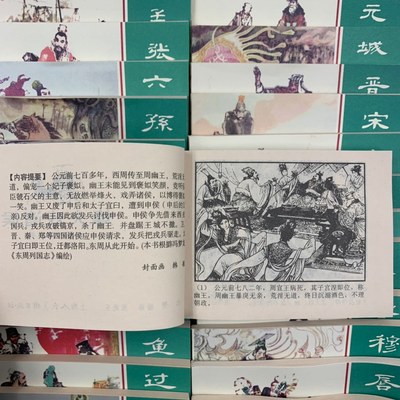 王
张
六
孫
元
城
晋
宋
【内容提要】公元前七百多年，西周传至周幽王，荒淫
道，偏宠一个妃子褒姒。幽王未能见到褒姒笑颜，竟听
臣虢石父的主意，无故燃举烽火，戏弄诸侯，以博得褒
一笑。幽王又废了申后和太子宜臼，遭到申侯（申后的
亲）反对，幽王因此欲发兵讨伐申侯。申侯争先借来西
国兵，戎兵攻破镐京，杀了幽王，并盘踞王城不撤。卫
晋、秦、郑等四国诸侯应申侯请求，发兵把戎兵驱走，
子宜臼即王位，迁都洛阳，东周从此开始。（本书根据冯梦
《东周列国志》编绘）
封面画 韩
（1） 公元前七八二年，周宣王病死，其子宫涅即位，称
幽王。周幽王暴戾无亲，荒淫无道，终日沉湎酒色，不理
朝政。
鱼
过
穆
唇